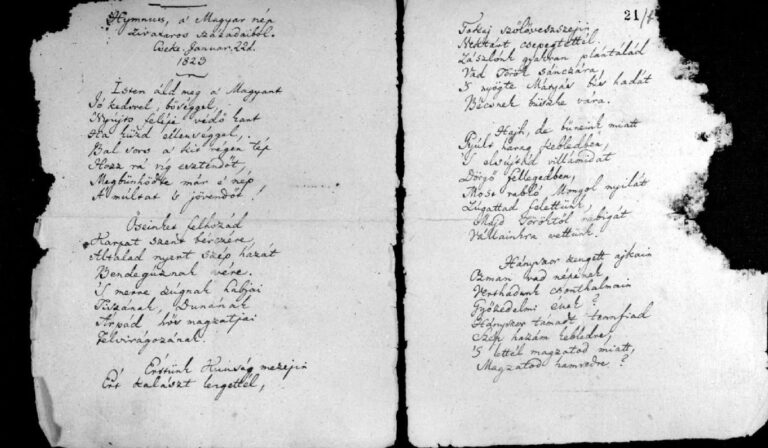 Hymnus, a' Magyar nép
zivataros századaiból.
Cseke. Januar. 22d.
1823
Isten áld meg a' Magyart
Jó kedvvel, bőséggel,
Nyújts feléje védő kart
Ha küzd ellenséggel;
Bal sors a' kit régen tép
Hozz rá víg esztendőt,
Megbűnhődte már e' nép
A' múltat 's jövendőt!
Őseinket felhozád
Kárpát szent bérczére
Általad nyert szép hazát
Bendegúznak vére.
'S merre zúgnak habjai
Tiszának, Dunának
Árpád hős magzatjai
Felvirágozának.
Értünk Kunság mezejin
Ért kalászt lengettél,
21/
Tokaj szőlővesszejin
Nektárt csepegtettél.
Zászlónk gyakran plántálád
Vad Török sánczára
'S nyögte Mátyás bús hadát
Bécsnek büszke vára.
Hajh, de bűneink miatt
Gyúlt harag kebledben,
'S elsujtád villámidat
Dörgő fellegedben,
Most rabló Mongol nyilát
Zúgattad felettünk,
Majd Töröktől rabigát
Vállainkra vettünk.
Hányszor zengett ajkain
Ozman vad népének
Vert hadunk csonthalmain
Győzedelmi ének?
Hányszor támadt tenfiad
Szép hazám kebledre,
'S lettél magzatod miatt,
Magzatod hamvedre?